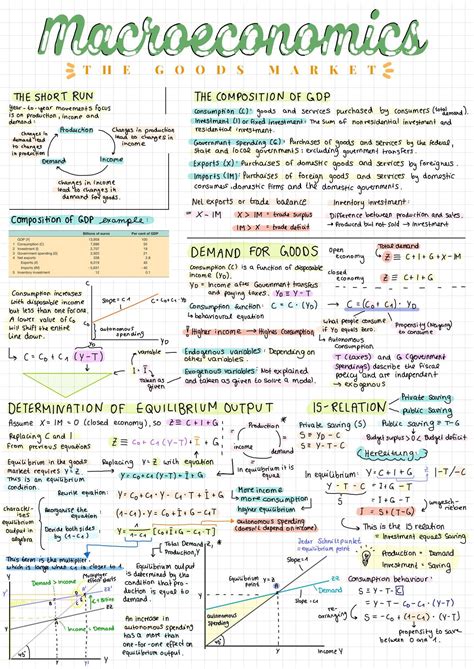 Macroeconomics
THE GOODS MARKET
THE SHORT RUN
Year-to-year movements focus
is on production, income and
demand:
Production
changes in
demand lead
to changes
in production
Changes in production
lead to changes in
income.
Demand
Income
changes in income
lead to changes in
demand for goods.
THE COMPOSITION OF GDP
Consumption (C): goods and services purchased by consumers (total demand).
Investment (I) or fixed investment: The sum of nonresidential investment and
residential investment.
Government Spending (G): Purchases of goods and services by the federal,
state and local governments; excluding government transfers.
Exports (X): Purchases of domestic goods and services by foreigners.
Imports (IM): Purchases of foreign goods and services by domestic
consumers, domestic firms and the domestic governments.
Net exports or trade balance
= X - IM
X > IM = trade surplus
X < IM = trade deficit
Inventory investment:
Difference between production and sales.
→ Produced but not sold → Inventory
Composition of GDP example:
Billions of euros
Per cent of GDP
GDP (Y)
100
1 Consumption (C)
2 Investment (I)
3 Government spending (G)
4 Net exports
Exports (X)
Imports (IM)
5 Inventory investment
DEMAND FOR GOODS
Consumption (C) is a function of disposable
income (YD).
YD = Income after Government transfers
and paying taxes. YD ≡ Y-T
Consumption function: C = C(YD)
↳ behavioural equation
(+)
Higher income → Higher Consumption
Endogenous variables: Depending on
other variables.
Exogenous variables: Not explained
and taken as given to solve a model.
Open
economy
Total demand
Z ≡ C+I+G+X-IM
closed
economy
Z ≡ C+I+G
C = (C0 + C1) · YD
what people consume
if YD equals zero.
= Autonomous
Consumption.
Propensity (Neigung)
to consume
T (taxes) and G (government
spendings) describe the fiscal
policy and are independent
→ exogenous
Consumption increases
with disposable income
but less than one for one.
A lower value of C0
will shift the entire
line down.
Slope = C1
C = C0 + C1 · YD
autonomous
spending
YD
↳ C = C0 + C1 (Y-T)
Variable
I = Ī
Taken as
given
DETERMINATION OF EQUILIBRIUM OUTPUT
Assume X = IM = 0 (closed economy), so Z ≡ C+I+G
Replacing C and I
From previous equations
Z ≡ C0+C1(Y-T)+Ī+G
Equilibrium in the goods
market requires Y=Z
This is an equilibrium
condition.
Replacing Y=Z with equation
Y = C0+C1(Y-T)+Ī+G
income
=
production
=
demand
In equilibrium it is
equal
Rewrite equation:
Y = C0+C1·Y-C1·T+Ī+G
Reorganise the
equation:
(1-C1)Y = C0+Ī+G-C1·T
Divide both sides
by (1-C1)
characterises
equilibrium
output in
algebra
Total Demand,
Production, Y
This term is the multiplier
which is large when C1 is closer to 1
More income
→ more consumption
higher equilibrium
= autonomous spending
(doesn't depend on income)
Equilibrium output
is determined by the
condition that pro-
duction is equal to
demand.
An increase in
autonomous spending
has a more than
one-for-one effect on
equilibrium output.
Demand
Income
Multiplier
ZZ'
ZZ
45°
Y
Jeder Schnittpunkt
= Equilibrium point
Equilibrium point
Y=Z
Demand
ZZ
Slope = C1
Slope = 1
autonomous
spending
45°
Y
IS-RELATION
Private saving
+ public saving
Private Saving (S)
S ≡ YD - C
S ≡ Y-T-C
Public saving = T-G
Budget surplus >0< Budget deficit
(Herleitung:)
In equilibrium:
Y = C+I+G
|-T/-C
Y-T-C = I+G-T
S = I+G-T
I = S+(T-G)
umgeschrieben
↳ This is the IS relation
= Investment equals Saving
Production = Demand
Investment = Saving
Consumption behaviour:
S ≡ Y-T-C
re-
arranging
S = Y-T-C0-C1·(Y-T)
→ S = -C0+(1-C1)·(Y-T)
propensity to save
between 0 and 1.